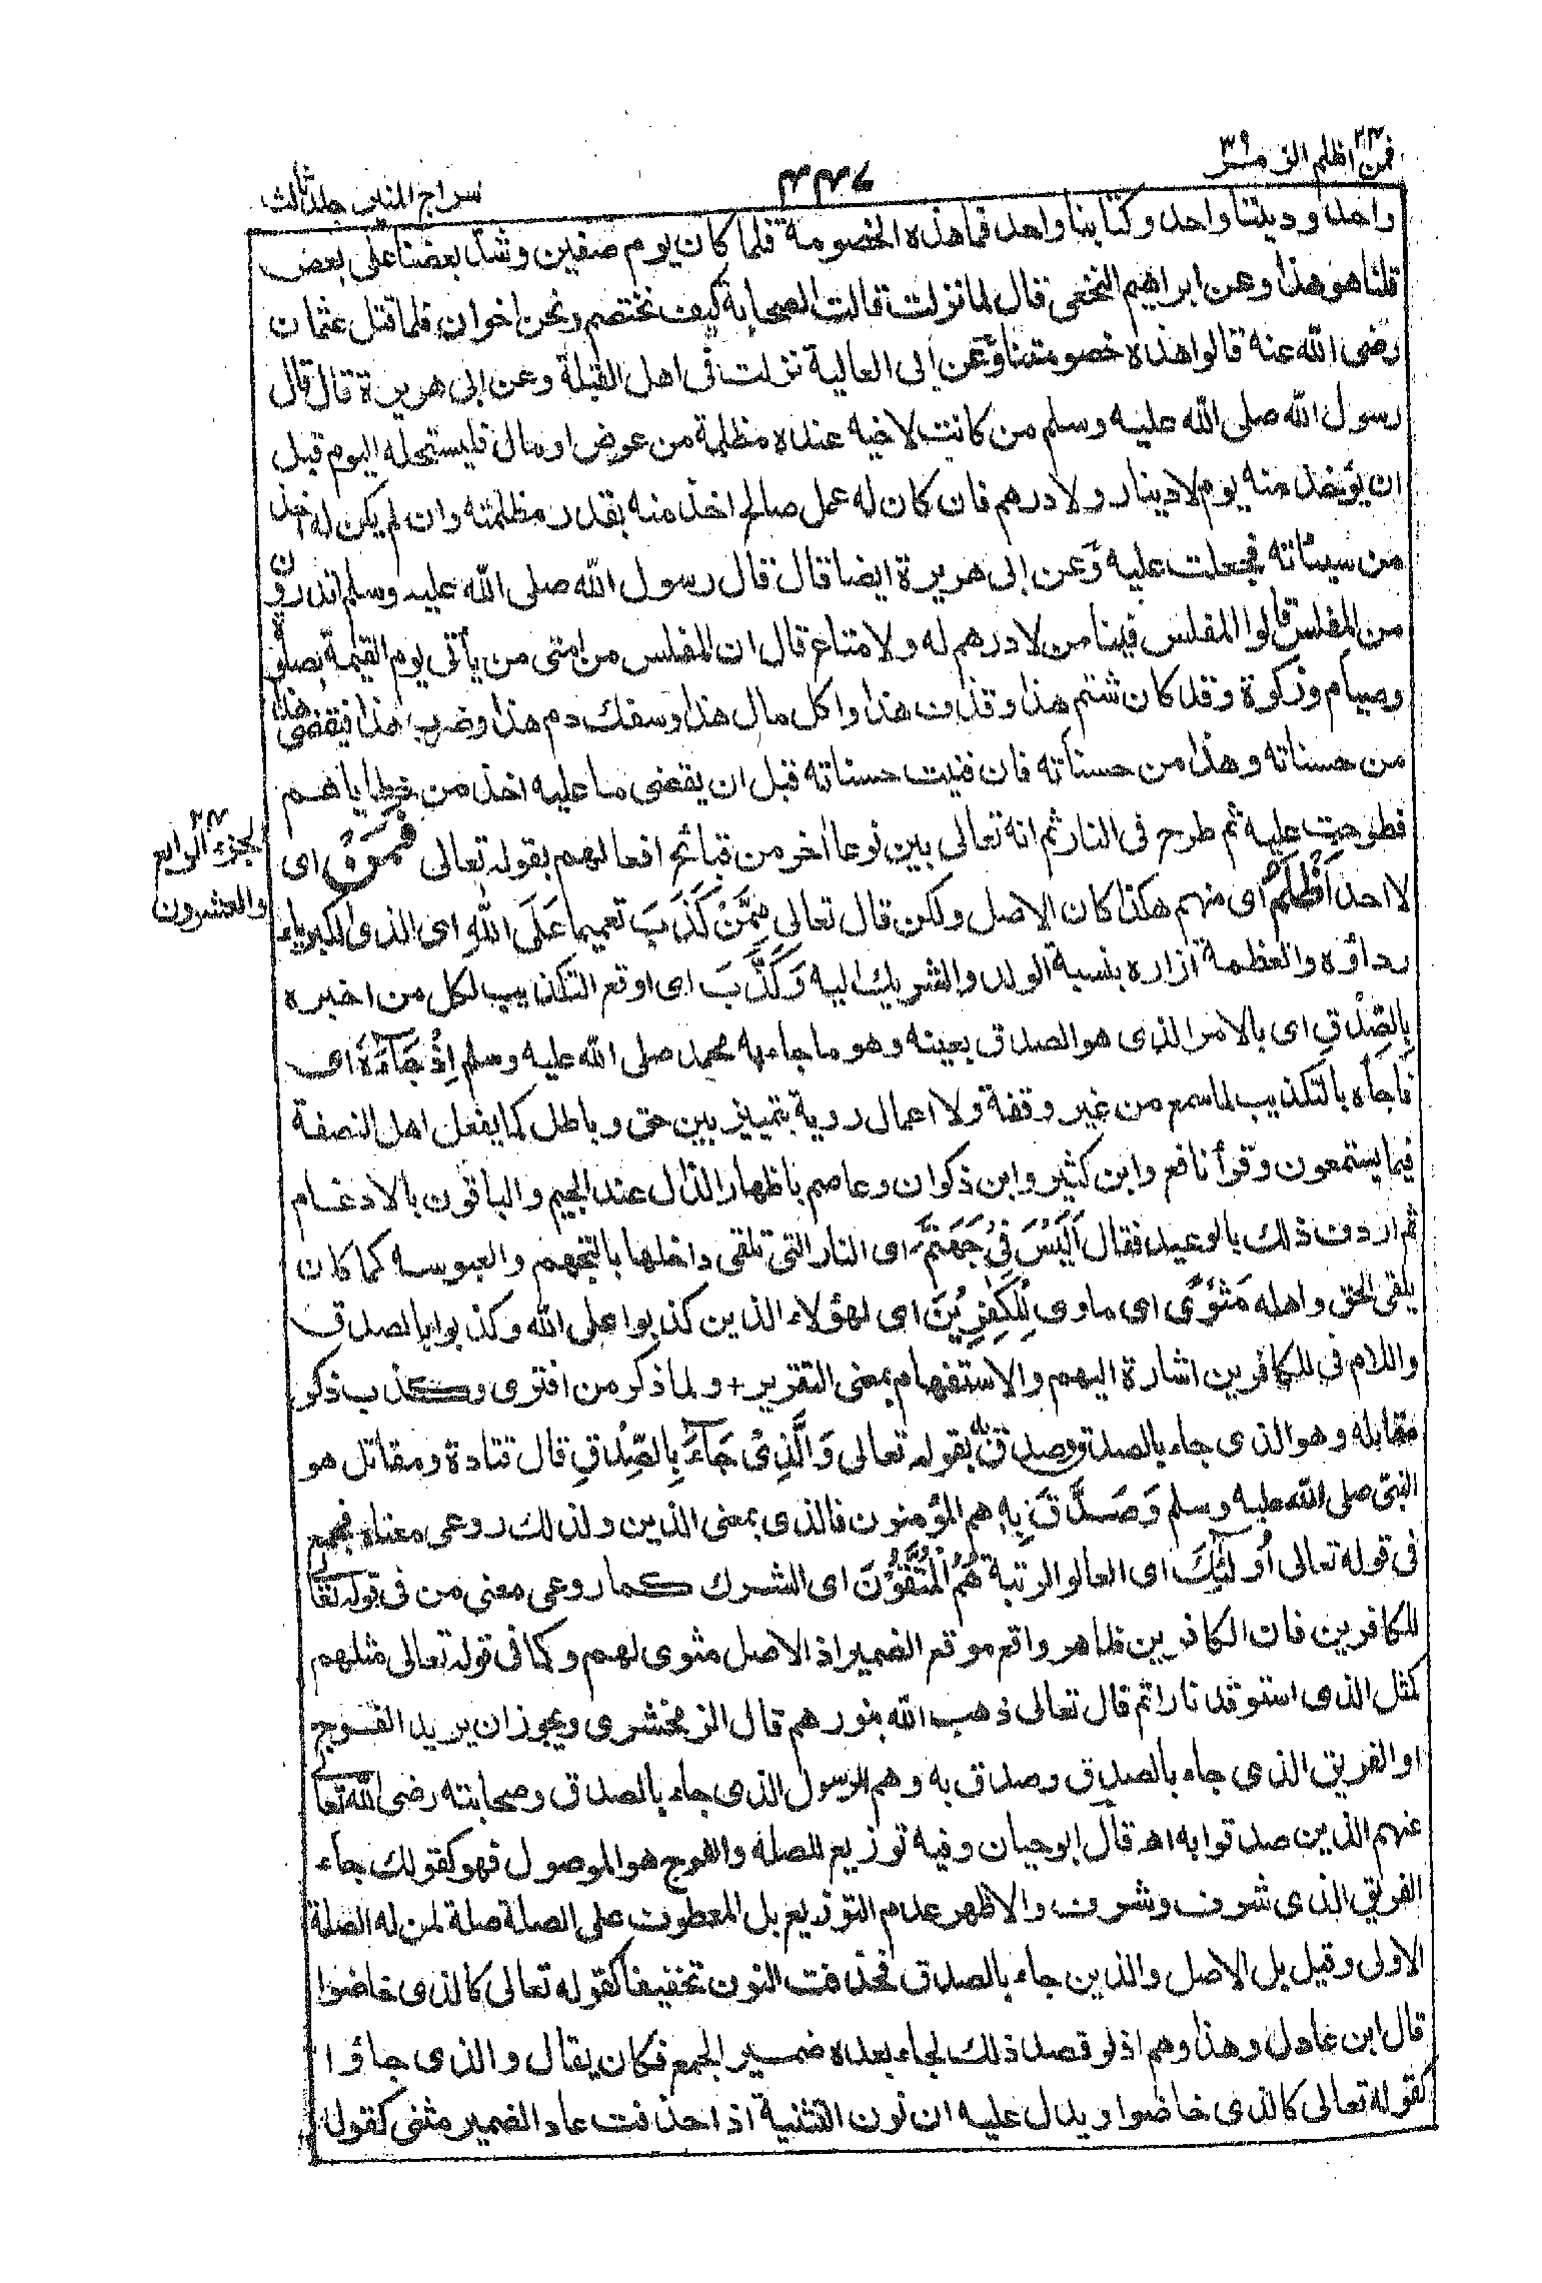 فمن اظلم ٢٤ الزمر ٣٩
٤٤٦
سراج المنير جلد ثالث
واحد وديننا واحد وكتابنا واحد فما هذه الخصومة فلما كان يوم صفين وشد بعضنا على بعض
قلنا هو هذا وعن ابراهيم النخعى قال لما نزلت قالت الصحابة كيف نختصم ونحن اخوان فلما قتل عثمان
رضى الله عنه قالوا هذه خصومتنا وعن ابى العالية نزلت فى اهل القبلة وعن ابى هريرة قال قال
رسول الله صلى الله عليه وسلم من كانت لاخيه عنده مظلمة من عرض او مال فليستحله اليوم قبل
ان يؤخذ منه يوم لا دينار ولا درهم فان كان له عمل صالح اخذ منه بقدر مظلمته وان لم يكن له اخذ
من سيئاته فجعلت عليه وعن ابى هريرة ايضا قال قال رسول الله صلى الله عليه وسلم اتدرون
من المفلس قالوا المفلس فينا من لا درهم له ولا متاع قال ان المفلس من امتى من يأتى يوم القيمة بصلوة
وصيام وزكوة وقد كان شتم هذا وقذف هذا واكل مال هذا وسفك دم هذا وضرب هذا فيقضى هذا
من حسناته وهذا من حسناته فان فنيت حسناته قبل ان يقضى ما عليه اخذ من خطاياهم
فطرحت عليه ثم طرح فى النار ثم انه تعالى بين نوعا آخر من قبائح افعالهم بقوله تعالى فَمَنْ اى
الجزء الرابع والعشرون ٢٤
لا احد اَظْلَمُ اى منهم هكذا كان الاصل ولكن قال تعالى مِمَّنْ كَذَبَ تعميما عَلَى اللهِ اى الذى الكبرياء
رداؤه والعظمة ازاره بنسبة الولد والشريك اليه وَكَذَّبَ اى اوقع التكذيب لكل من اخبره
بِالصِّدْقِ اى بالامر الذى هو الصدق بعينه وهو ما جاء به محمد صلى الله عليه وسلم اِذْ جَآءَهٗ اى
فاجأه بالتكذيب لما سمع من غير وقفة ولا اعمال روية بتمييز بين حق وباطل كما يفعل اهل النصفة
فيما يستمعون وقرأ نافع وابن كثير وابن ذكوان وعاصم باظهار الذال عند الجيم والباقون بالادغام
ثم اردف ذلك بالوعيد فقال اَلَيْسَ فِىْ جَهَنَّمَ اى النار التى تلقى داخلها بالتجهم والعبوسه كما كان
يلقى الحق واهله مَثْوًى اى ماوى لِّلْكٰفِرِيْنَ اى لهؤلاء الذين كذبوا على الله وكذبوا بالصدق
واللام فى للكافرين اشارة اليهم والاستفهام بمعنى التقرير + ولما ذكر من افترى وكذب ذكر
مقابله وهو الذى جاء بالصدق وصدق به بقوله تعالى وَالَّذِىْ جَآءَ بِالصِّدْقِ قال قتادة ومقاتل هو
النبى صلى الله عليه وسلم وَصَدَّقَ بِهٖ هم المؤمنون فالذى بمعنى الذين ولذلك روعى معناه فجمع
فى قوله تعالى اُولٰٓئِكَ اى العالو الرتبة هُمُ الْمُتَّقُوْنَ اى الشرك كما روعى معنى من فى قوله تعالى
للكافرين فان الكافرين ظاهر واقع موقع الضمير اذ الاصل مثوى لهم وكما فى قوله تعالى مثلهم
كمثل الذى استوقد نارا ثم قال تعالى ذهب الله بنورهم قال الزمخشرى ويجوز ان يريد الفوج
او الفريق الذى جاء بالصدق وصدق به وهم الرسول الذى جاء بالصدق وصحابته رضى الله تعالى
عنهم الذين صدقوا به اهـ قال ابو حيان وفيه توزيع للصلة والفوج هو الموصول فهو كقولك جاء
الفريق الذى شرف وشرف والاظهر عدم التوزيع بل المعطوف على الصلة صلة لمن له الصلة
الاولى وقيل بل الاصل والذين جاء بالصدق فحذفت النون تخفيفا كقوله تعالى كالذى خاضوا
قال ابن عادل وهذا وهم اذ لو قصد ذلك لجاء بعده ضمير الجمع فكان يقال والذى جاؤا
كقوله تعالى كالذى خاضوا ويدل عليه ان نون التثنية اذا حذفت عاد الضمير مثنى كقوله